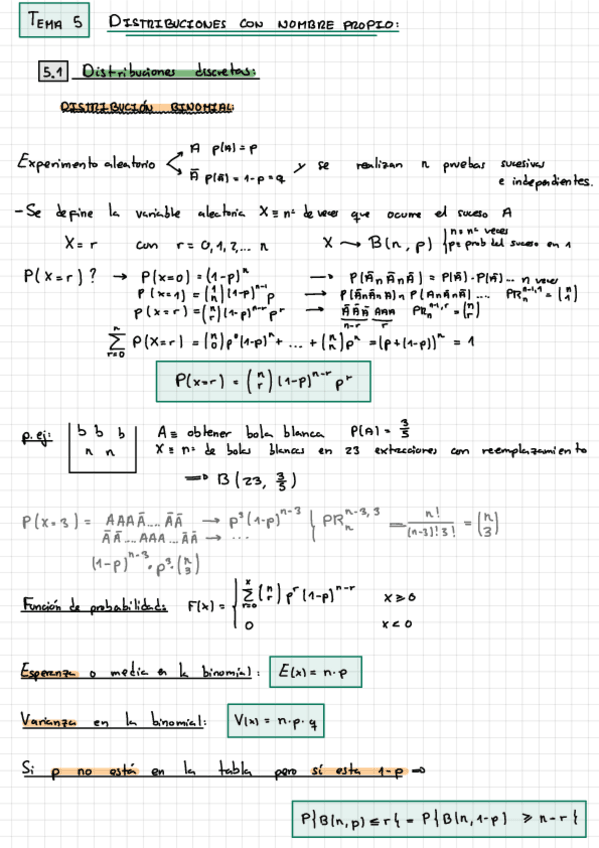 TEMA 5 DISTRIBUCIONES CON NOMBRE PROPIO:
5.1 Distribuciones discretas:
DISTRIBUCIÓN BINOMIAL:
A p(A) = p
Experimento aleatorio y se realizan n pruebas sucesivas
Ā p(Ā) = 1-p = q e independientes.
- Se define la variable aleatoria X ≡ nº de veces que ocurre el suceso A
X = r con r = 0, 1, 2, ... n X → B(n, p) { n = nº veces
p = prob del suceso en 1
P(X=r)? → P(X=0) = (1-p)^n → P(Ā∩Ā∩Ā) = P(Ā)·P(Ā)... n veces
P(X=1) = (n 1)(1-p)^{n-1} p → P(Ā∩Ā∩A)∩P(A∩Ā∩Ā).... PR_n^{n-1,1} = (n 1)
P(X=r) = (n r)(1-p)^{n-r} p^r → ĀĀĀ AAA PR_n^{n-r,r} = (n r)
n-r r
∑_{r=0}^{n} P(X=r) = (n 0) p^0 (1-p)^n + ... + (n n) p^n = (p+(1-p))^n = 1
P(X=r) = (n r) (1-p)^{n-r} p^r
p.ej: b b b A ≡ obtener bola blanca P(A) = 3/5
n n X ≡ nº de bolas blancas en 23 extracciones con reemplazamiento
→ B(23, 3/5)
P(X=3) = AAAĀ.... ĀĀ → p^3(1-p)^{n-3} { PR_n^{n-3,3} = n!/((n-3)! 3!) = (n 3)
ĀĀ....AAA...ĀĀ → ...
(1-p)^{n-3} · p^3 · (n 3)
Función de probabilidad: F(x) = { ∑_{r=0}^{x} (n r) p^r (1-p)^{n-r} x ≥ 0
0 x < 0
Esperanza o media en la binomial: E(x) = n·p
Varianza en la binomial: V(x) = n·p·q
Si p no está en la tabla pero sí esta 1-p ⇒
P{B(n,p) ≤ r} = P{B(n,1-p) ≥ n-r}